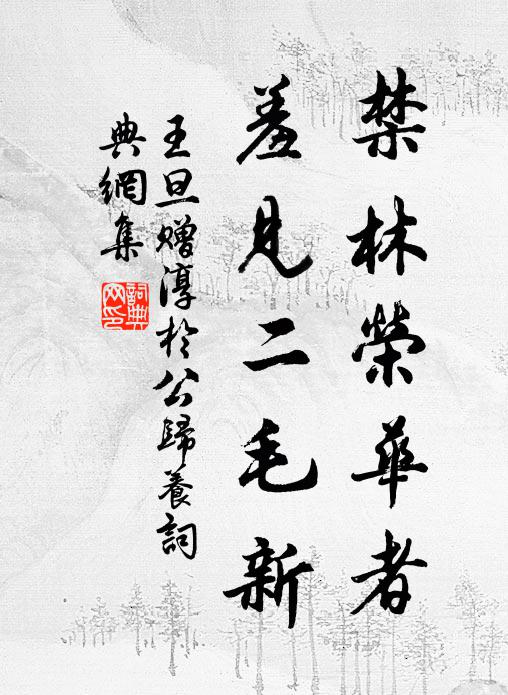 禁林榮華者
羞見二毛新
王旦贈淳於公歸養詞
典網集
詞典網印